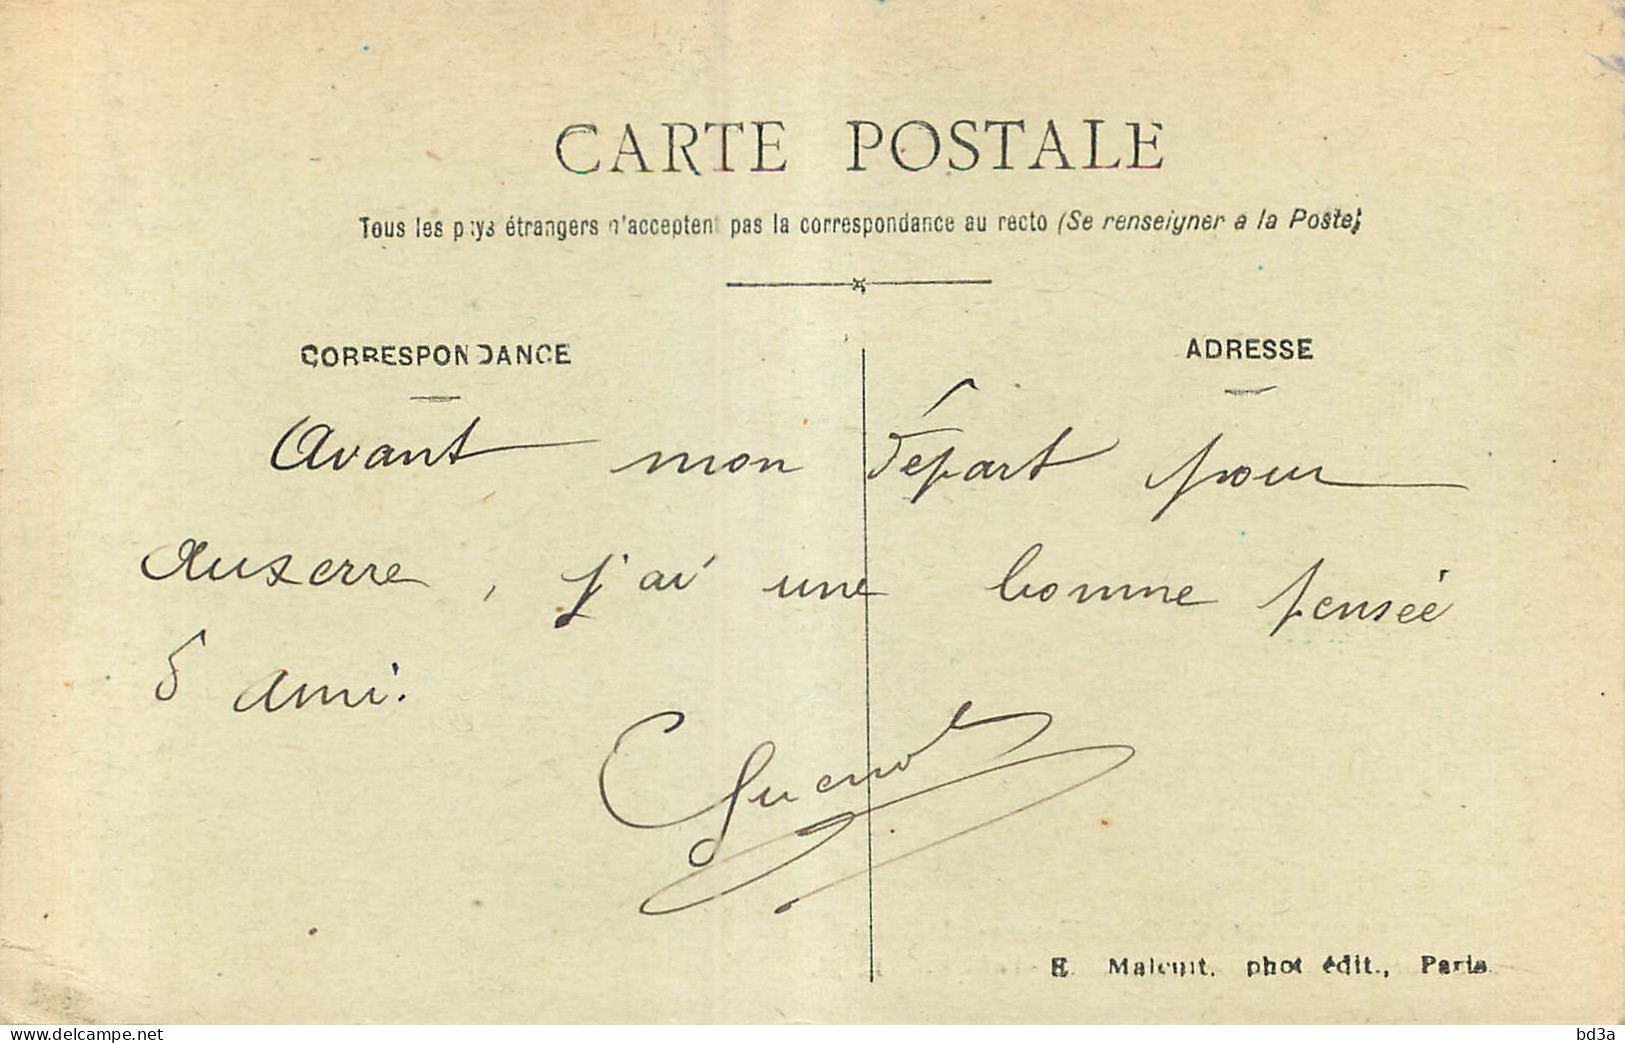 CARTE POSTALE
Tous les pays étrangers n'acceptent pas la correspondance au recto (Se renseigner a la Poste)
CORRESPONDANCE
ADRESSE
Avant mon départ pour
Auxerre, j'ai une bonne pensée
d'ami.
E. Malcuit, phot édit., Paris
www.delcampe.net
bd3a